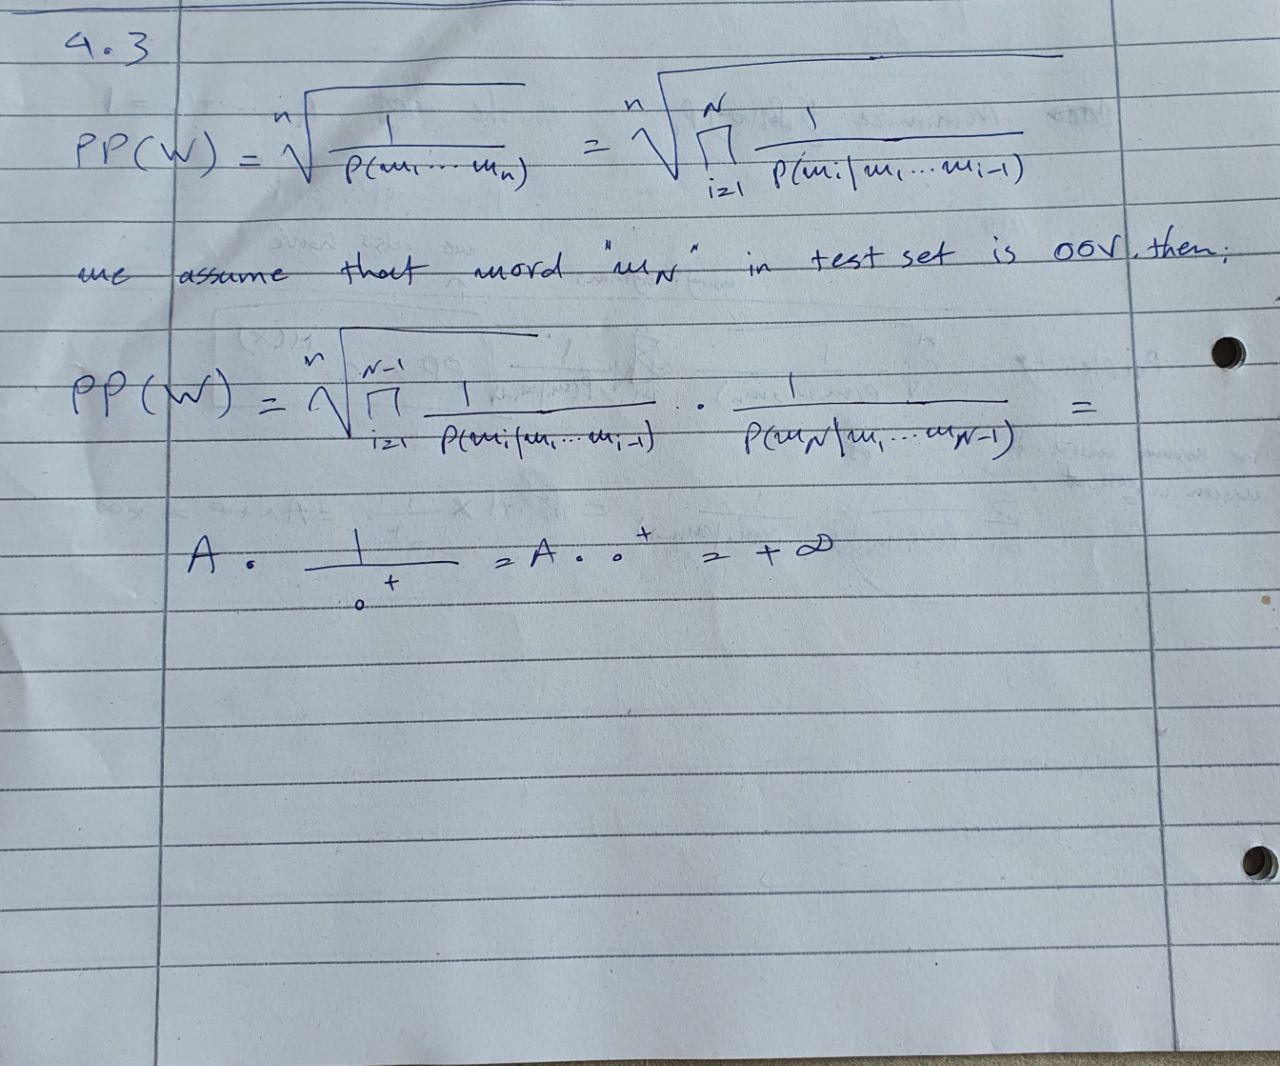 4.3
PP(W) = ⁿ√(1 / P(w₁...wₙ)) = ⁿ√(∏ᵢ₌₁ᴺ 1 / P(wᵢ|w₁...wᵢ₋₁))
we assume that word "w_N" in test set is OOV. then;
PP(W) = ⁿ√(∏ᵢ₌₁ᴺ⁻¹ 1 / P(wᵢ|w₁...wᵢ₋₁)) · 1 / P(w_N|w₁...w_N₋₁) =
A · 1 / 0⁺ = A · 0⁺ = +∞